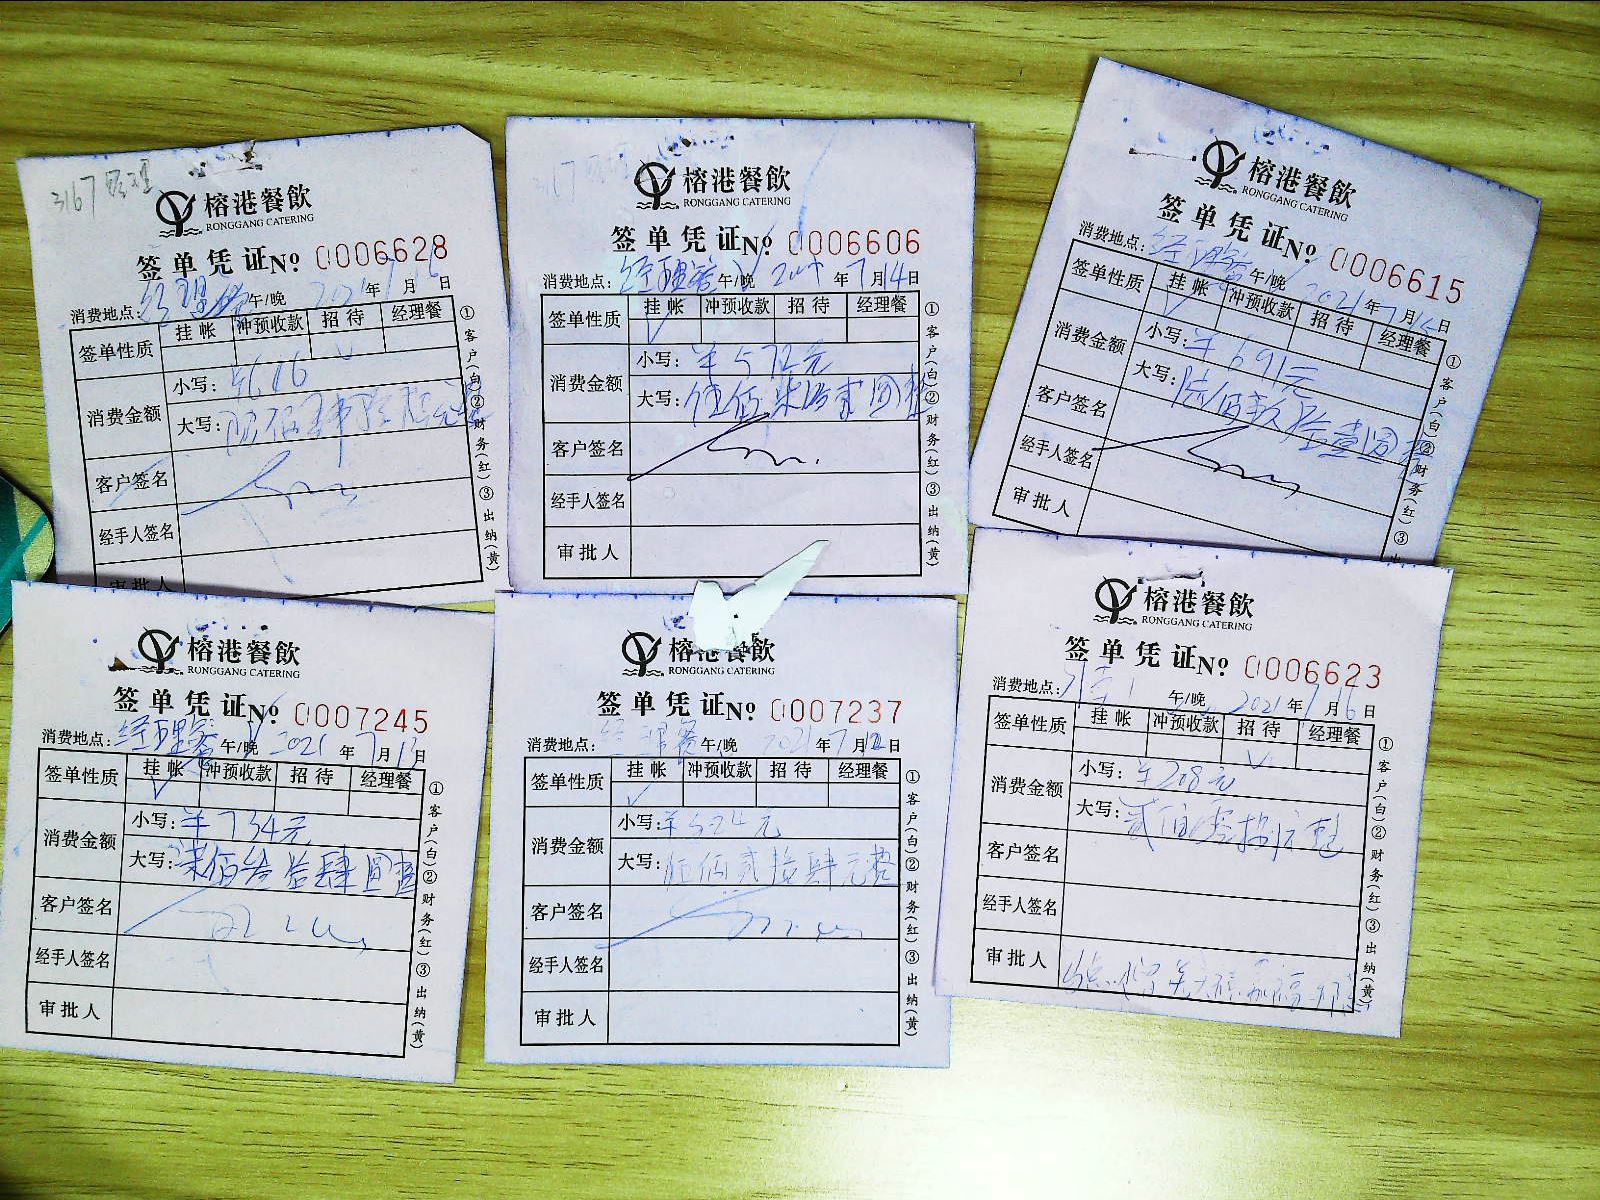 3167
榕港餐飲
RONGGANG CATERING
签单凭证 No 0006628
消费地点: 经理餐 午/晚 2021年7月16日
签单性质 挂帐 冲预收款 招待 经理餐
消费金额 小写:
大写:
客户签名
经手人签名
审批人
①客户(白)②财务(红)③出纳(黄)
榕港餐飲
RONGGANG CATERING
签单凭证 No 0006606
消费地点: 经理餐 午/晚 2021年7月14日
签单性质 挂帐 冲预收款 招待 经理餐
消费金额 小写: ¥572元
大写: 伍佰柒拾贰圆整
客户签名
经手人签名
审批人
①客户(白)②财务(红)③出纳(黄)
榕港餐飲
RONGGANG CATERING
签单凭证 No 0006615
消费地点: 经理餐 午/晚 2021年7月15日
签单性质 挂帐 冲预收款 招待 经理餐
消费金额 小写: ¥691元
大写: 陆佰玖拾壹圆整
客户签名
经手人签名
审批人
①客户(白)②财务(红)③出
榕港餐飲
RONGGANG CATERING
签单凭证 No 0007245
消费地点: 经理餐 午/晚 2021年7月13日
签单性质 挂帐 冲预收款 招待 经理餐
消费金额 小写: ¥734元
大写: 柒佰叁拾肆圆整
客户签名
经手人签名
审批人
①客户(白)②财务(红)③出纳(黄)
榕港餐飲
RONGGANG CATERING
签单凭证 No 0007237
消费地点: 经理餐 午/晚 2021年7月12日
签单性质 挂帐 冲预收款 招待 经理餐
消费金额 小写: ¥524元
大写: 伍佰贰拾肆元整
客户签名
经手人签名
审批人
①客户(白)②财务(红)③出纳(黄)
榕港餐飲
RONGGANG CATERING
签单凭证 No 0006623
消费地点: 午/晚 2021年7月16日
签单性质 挂帐 冲预收款 招待 经理餐
消费金额 小写: ¥208元
大写: 贰佰零捌元整
客户签名
经手人签名
审批人
①客户(白)②财务(红)③出纳(黄)